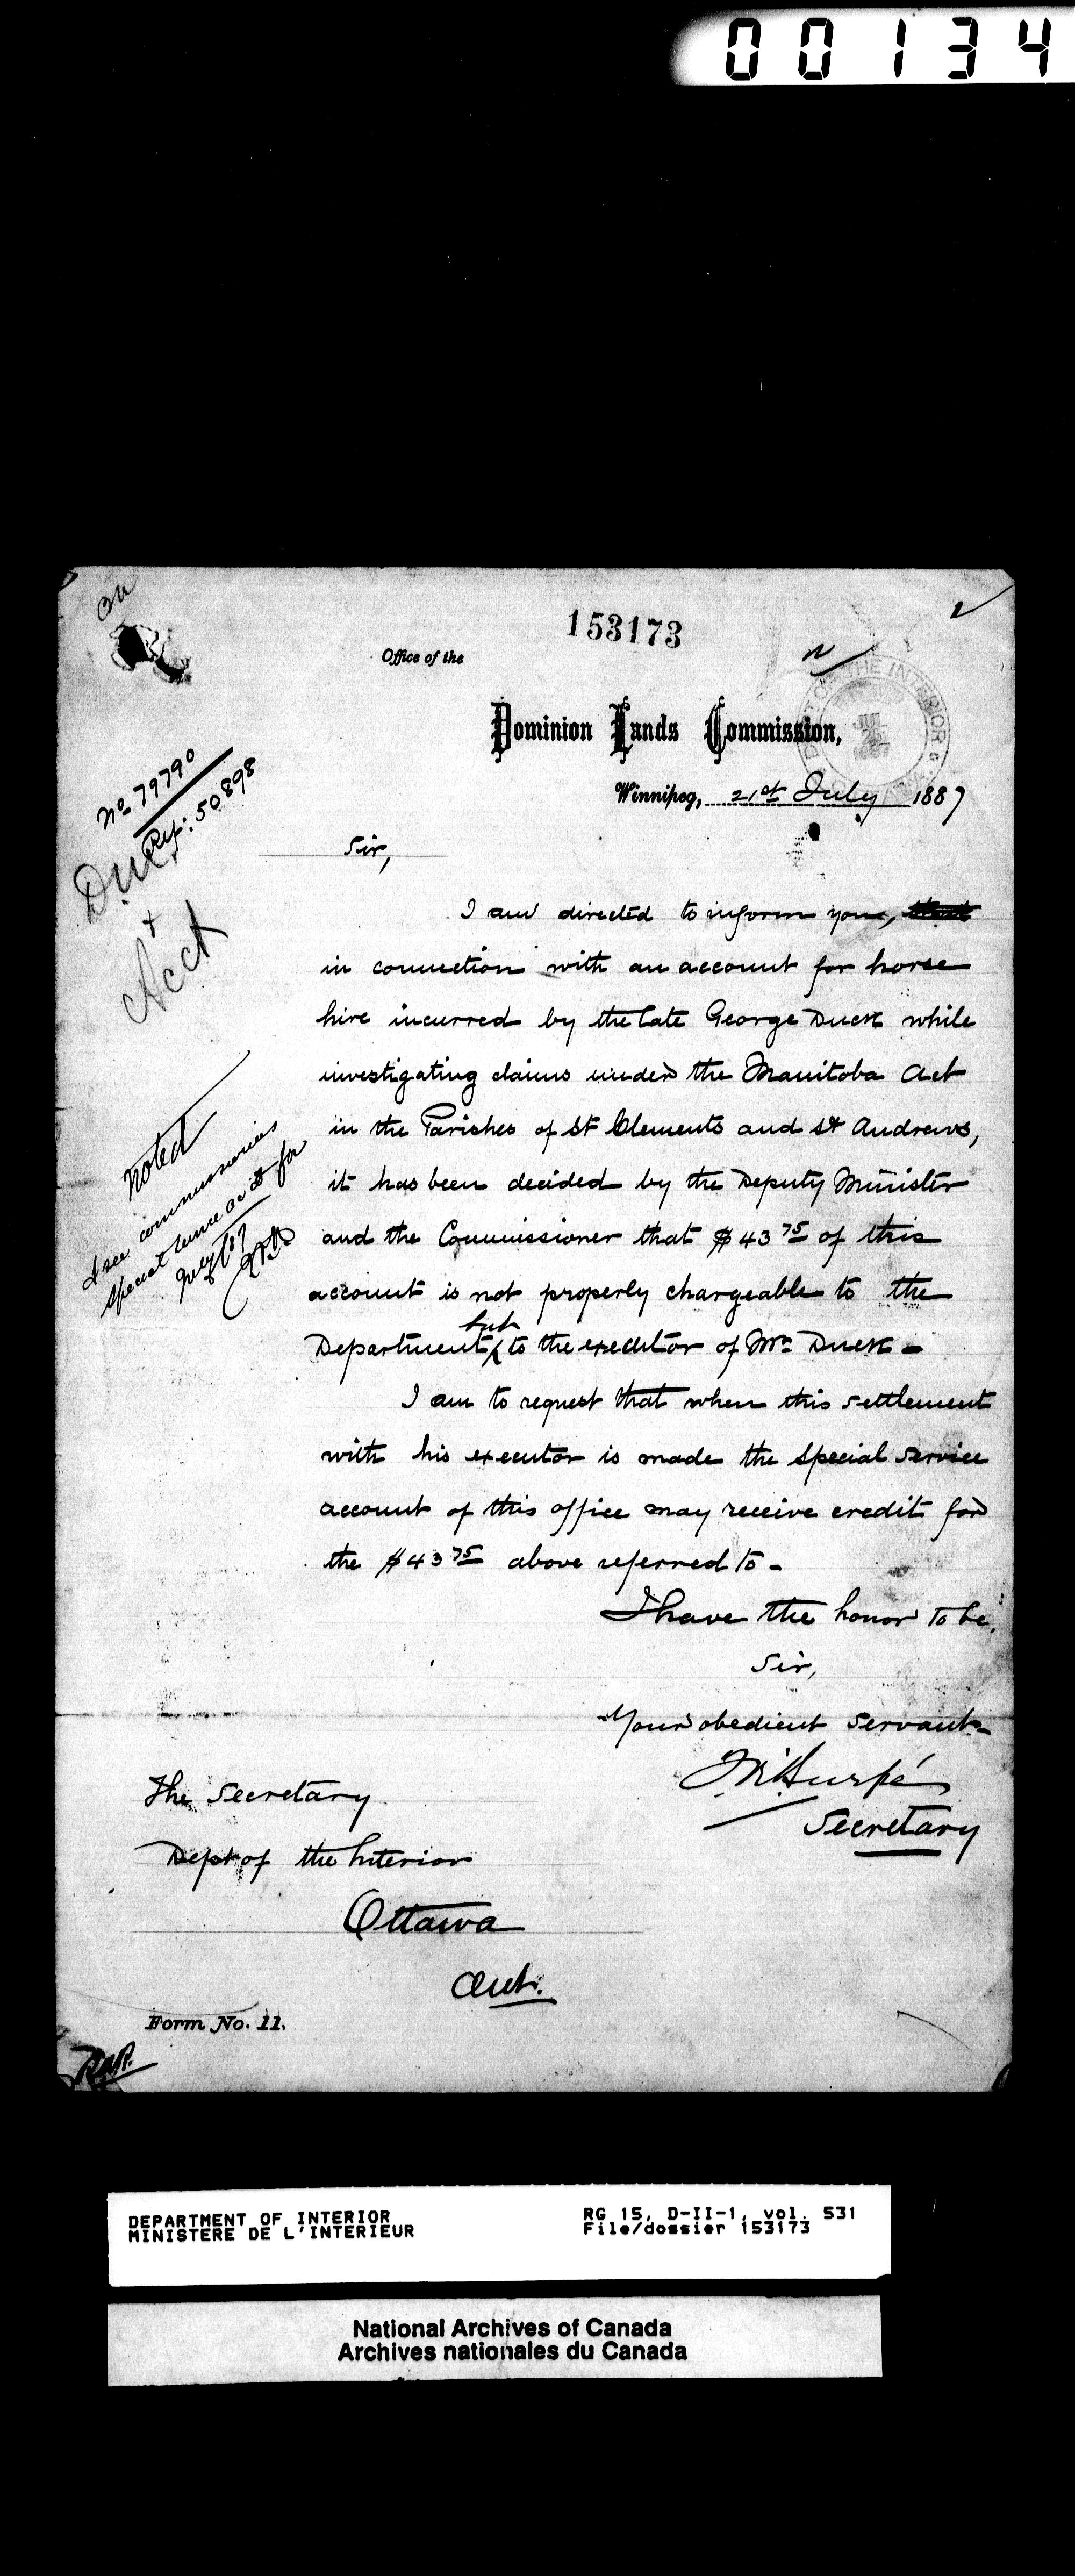 00134
153173
Office of the
Dominion Lands Commission,
Winnipeg, 21st July 1887
No 79790
Ref: 50898
Duck
+
Acct
Sir,
I am directed to inform you,
in connection with an account for horse
hire incurred by the late George Duck while
investigating claims under the Manitoba Act
in the Parishes of St Clements and St Andrews,
it has been decided by the Deputy Minister
and the Commissioner that $43 75 of this
account is not properly chargeable to the
Department but to the executor of Mr Duck -
I am to request that when this settlement
with his executor is made the Special Service
account of this office may receive credit for
the $43 75 above referred to -
I have the honor to be,
Sir,
Your obedient servant
Secretary
noted
special service acct for
July
The Secretary
Dept of the Interior
Ottawa
Ont.
Form No. 11.
DEPARTMENT OF INTERIOR
MINISTERE DE L'INTERIEUR
RG 15, D-II-1, vol. 531
File/dossier 153173
National Archives of Canada
Archives nationales du Canada